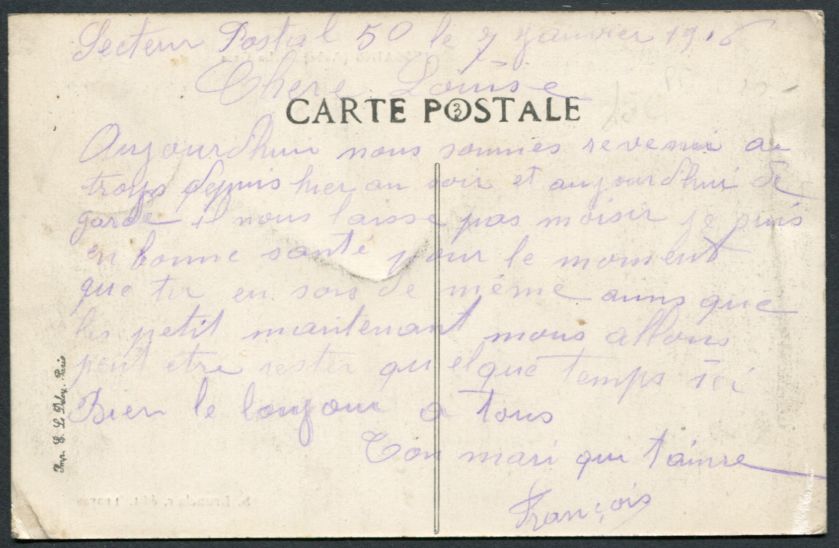 Secteur Postal 50 le 7 Janvier 1916
Chere Louise
CARTE POSTALE
Aujourdhui nous sommes revenu au
troys depuis hier au soir et aujourdhui de
garde il nous laisse pas moisir je suis
en bonne santé pour le moment
que tu en sois de même ainsi que
les petit maintenant nous allons
peut etre rester quelque temps ici
Bien le bonjour a tous
Ton mari qui t'aime
François
Imp. E. Le Deley, Paris